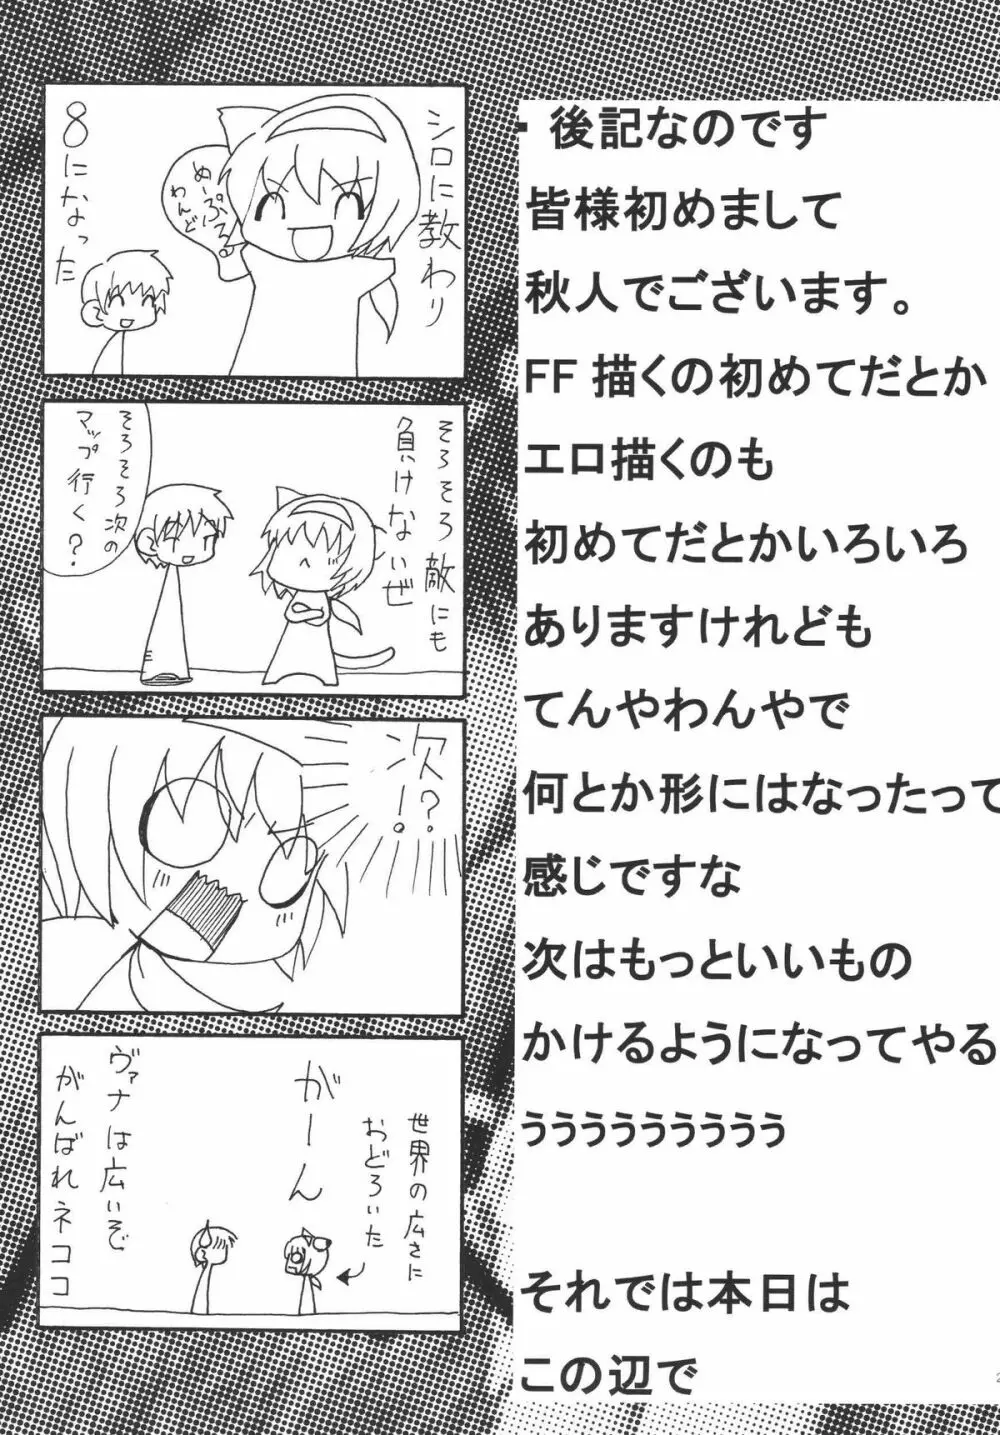 シロに教わり
8になった
めーぷる
わんど
そろそろ敵にも
負けないぜ
そろそろ次の
マップ行く?
次?!
世界の広さに
おどろいた
がーん
ヴァナは広いぞ
がんばれネココ
・後記なのです
皆様初めまして
秋人でございます。
FF描くの初めてだとか
エロ描くのも
初めてだとかいろいろ
ありますけれども
てんやわんやで
何とか形にはなったって
感じですな
次はもっといいもの
かけるようになってやる
ぅぅぅぅぅぅぅぅぅ
それでは本日は
この辺で